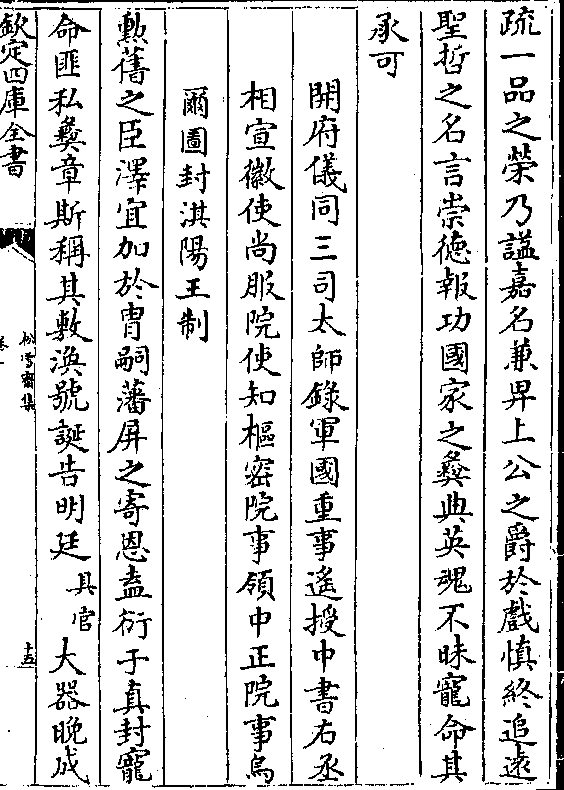 疏一品之榮乃諡嘉名兼畀上公之爵於戲慎終追遠
聖哲之名言崇德報功國家之彝典英魂不昧寵命其
承可
開府儀同三司太師錄軍國重事遙授中書右丞
相宣徽使尚服院使知樞密院事領中正院事烏
爾圖封淇陽王制
勲舊之臣澤宜加於胄嗣藩屏之寄恩盍衍于真封寵
命匪私彝章斯稱其敷渙號誕告明廷具官大器晚成
欽定四庫全書
松雪齋集
卷
十五